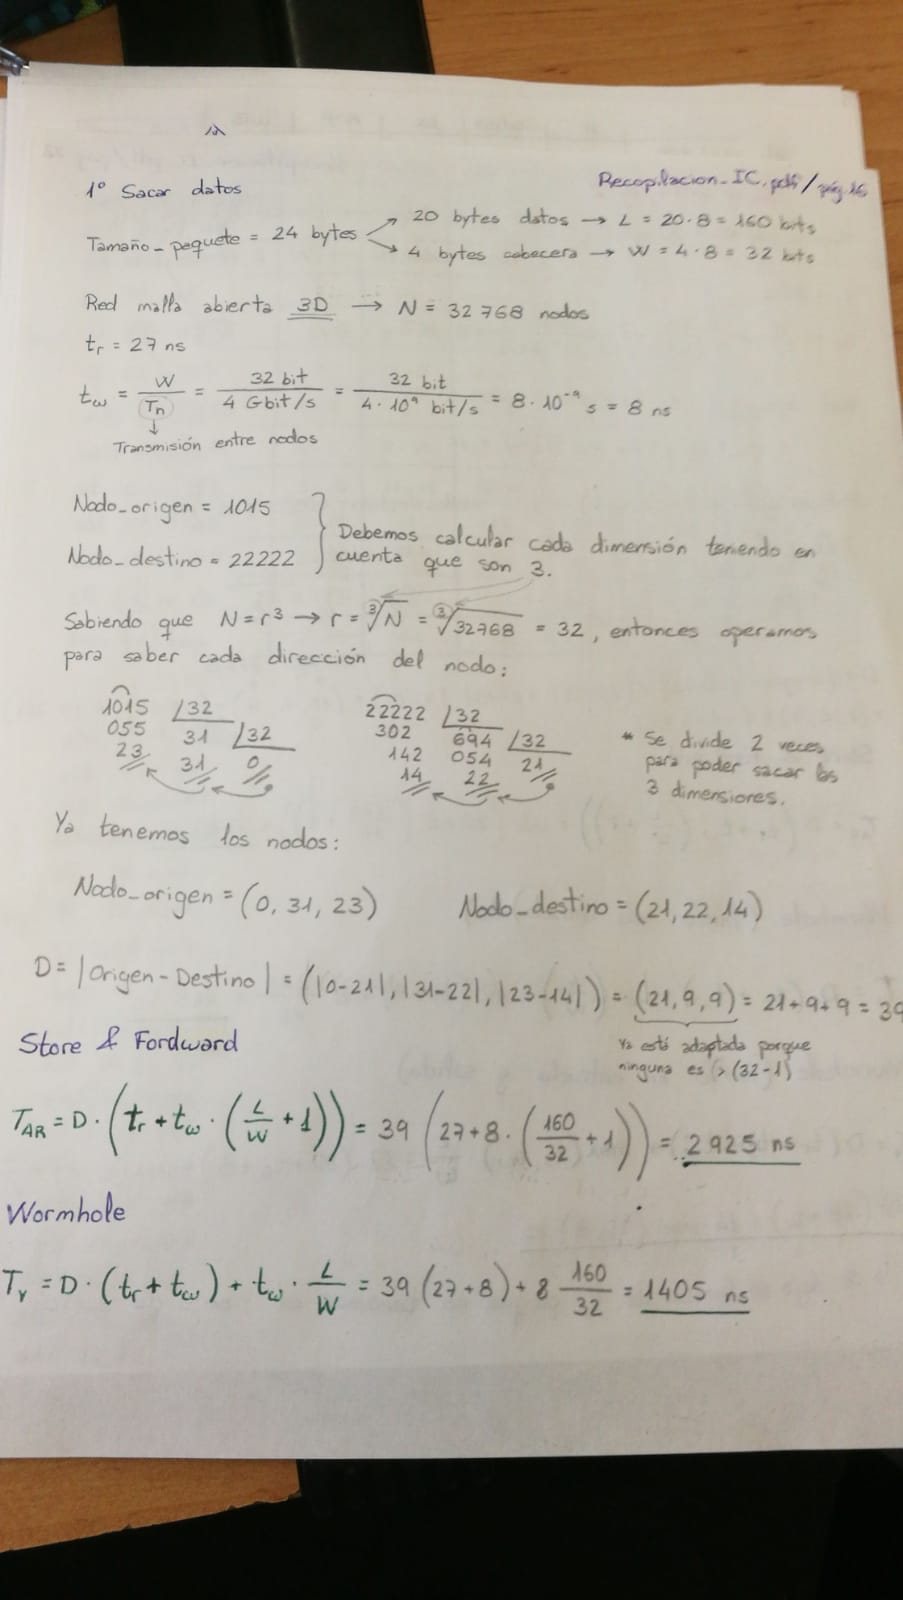 Recopilacion_IC.pdf/pág.16
1º Sacar datos
Tamaño_pequete = 24 bytes → 20 bytes datos → L = 20·8 = 160 bits
→ 4 bytes cabecera → W = 4·8 = 32 bits
Red malla abierta 3D → N = 32768 nodos
tr = 27 ns
tω = W/Tn = 32 bit/4 Gbit/s = 32 bit/4·10⁹ bit/s = 8·10⁻⁹ s = 8 ns
↓
Transmisión entre nodos
Nodo_origen = 1015
Nodo_destino = 22222
} Debemos calcular cada dimensión teniendo en
cuenta que son 3.
Sabiendo que N = r³ → r = ∛N = ∛32768 = 32, entonces operamos
para saber cada dirección del nodo:
1015 /32 22222 /32
055 31 /32 302 694 /32
23 31 0 142 054 21
14 22
* Se divide 2 veces
para poder sacar las
3 dimensiones.
Ya tenemos los nodos:
Nodo_origen = (0, 31, 23) Nodo_destino = (21, 22, 14)
D = |Origen - Destino| = (|0-21|, |31-22|, |23-14|) = (21, 9, 9) = 21+9+9 = 39
Ya está adaptada porque
ninguna es > (32-1)
Store & Fordward
TAR = D · (tr + tω · (L/W + 1)) = 39 (27+8 · (160/32 + 1)) = 2925 ns
Wormhole
Tv = D · (tr + tω) + tω · L/W = 39 (27+8) + 8 160/32 = 1405 ns